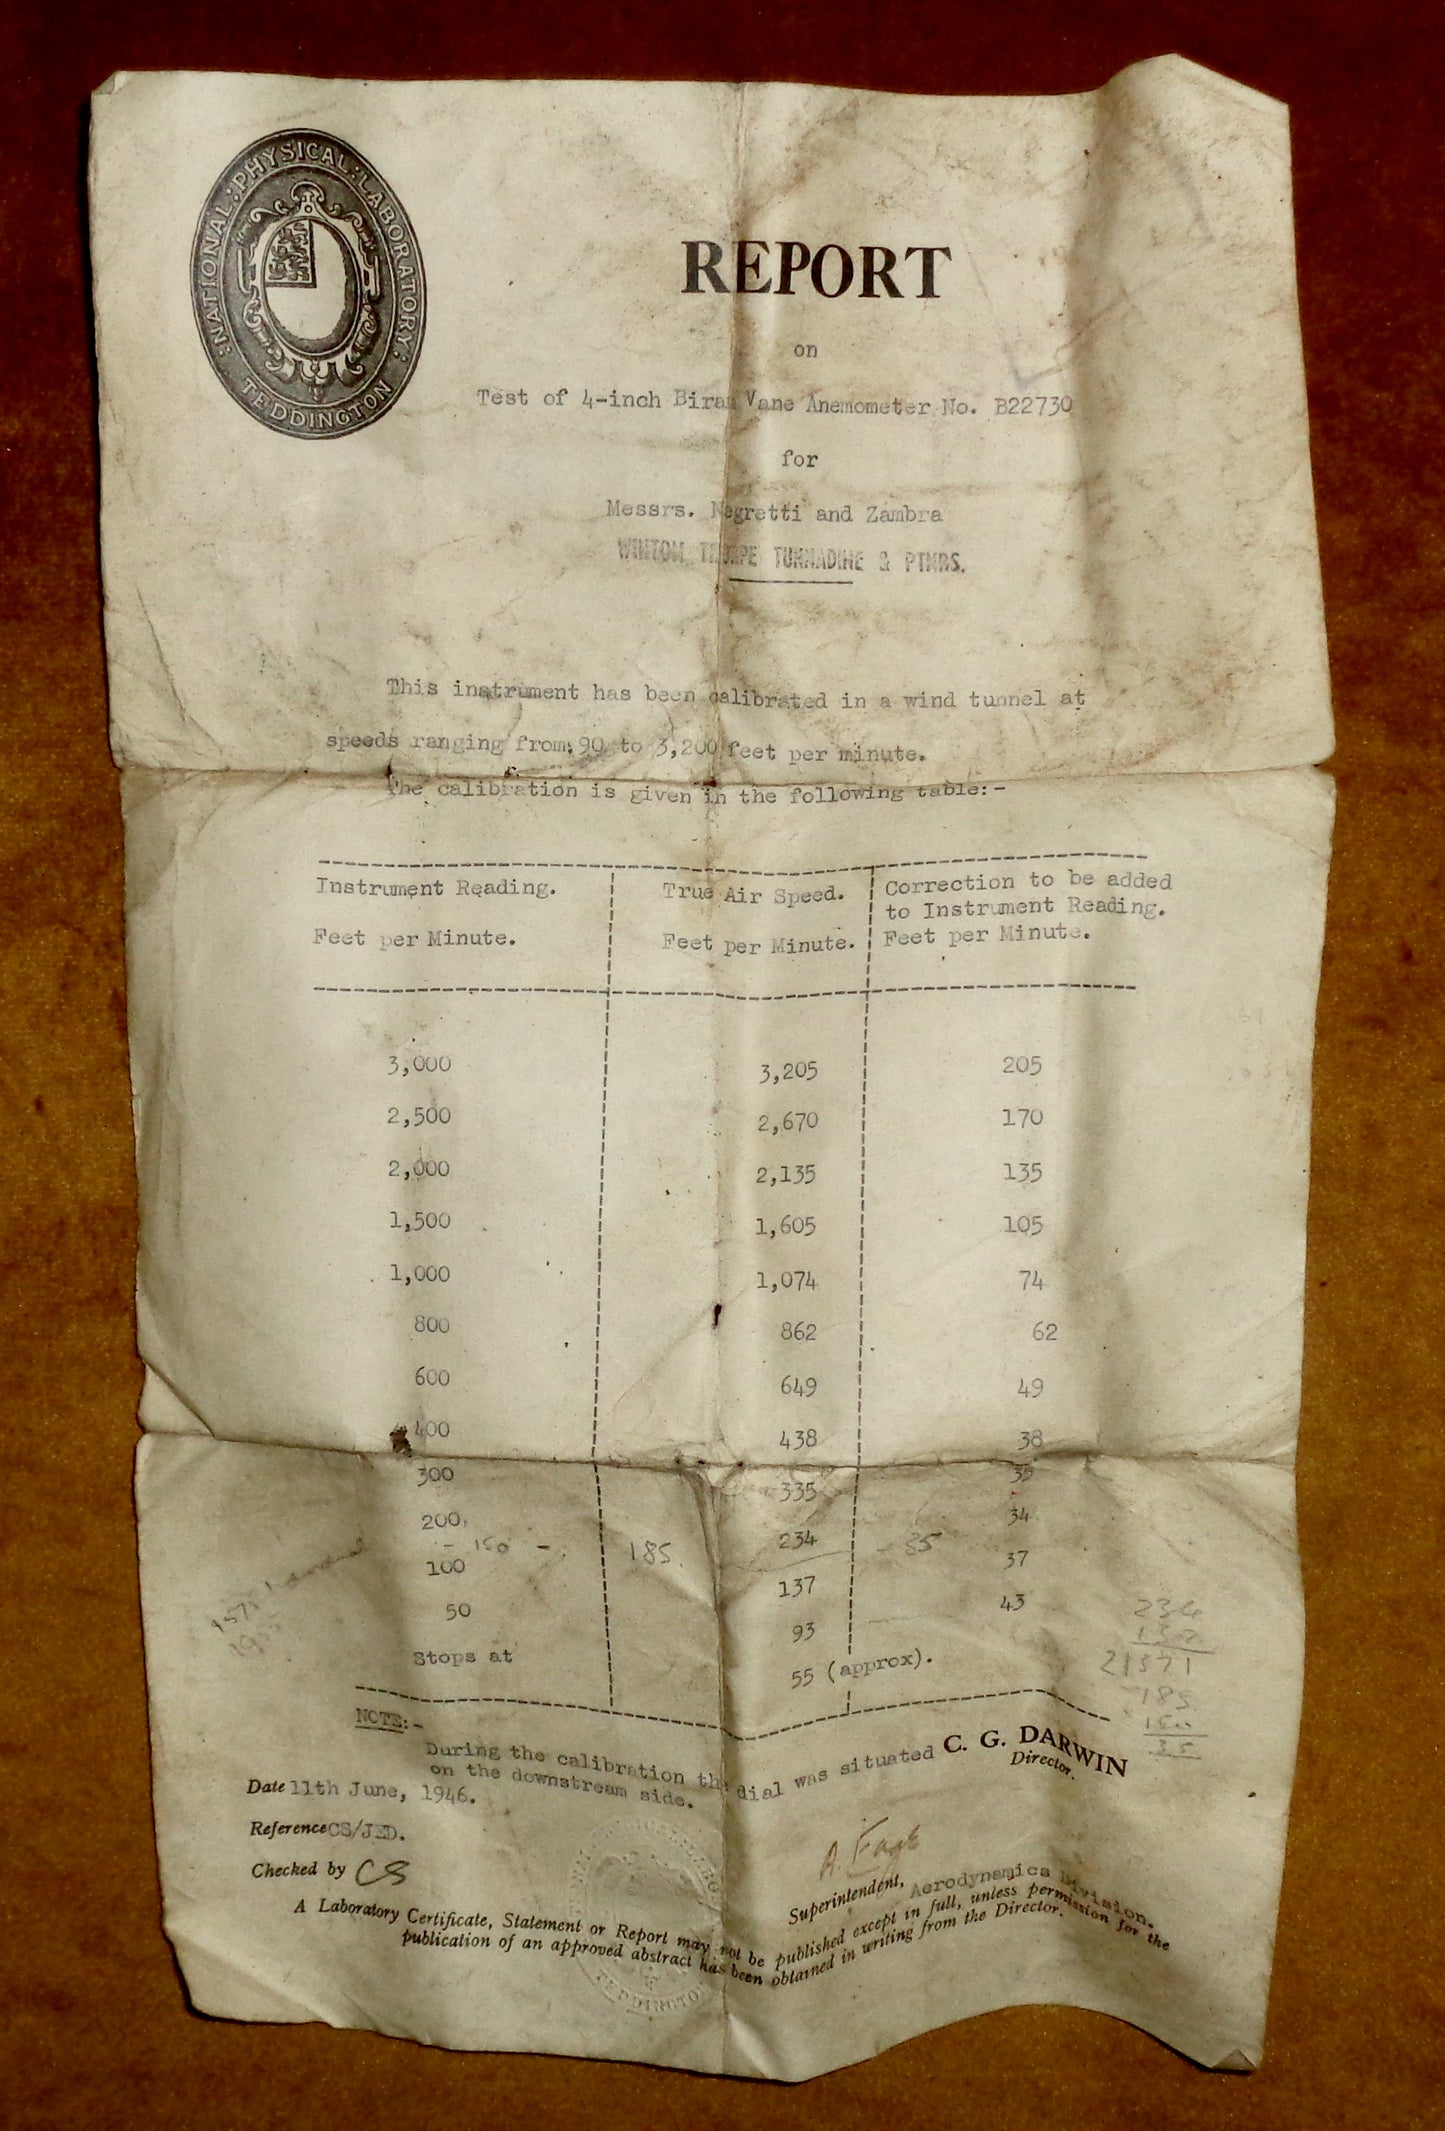 : NATIONAL : PHYSICAL : LABORATORY :
TEDDINGTON
REPORT
on
Test of 4-inch Biram Vane Anemometer No. B22730
for
Messrs. Negretti and Zambra
& PTNRS.
This instrument has been calibrated in a wind tunnel at
speeds ranging from 90 to 3,200 feet per minute.
The calibration is given in the following table:-
Instrument Reading. True Air Speed. Correction to be added
to Instrument Reading.
Feet per Minute. Feet per Minute. Feet per Minute.
3,000 3,205 205
2,500 2,670 170
2,000 2,135 135
1,500 1,605 105
1,000 1,074 74
800 862 62
600 649 49
400 438 38
300 335 35
200 234 34
- 150 - 185 - 35
100 137 37
50 93 43
Stops at 55 (approx).
234
185
150
35
NOTE:-
During the calibration the dial was situated
on the downstream side.
C. G. DARWIN
Director.
Date 11th June, 1946.
Reference CS/JED.
Checked by CS
A. Fage
Superintendent, Aerodynamics Division.
A Laboratory Certificate, Statement or Report may not be published except in full, unless permission for the
publication of an approved abstract has been obtained in writing from the Director.
TEDDINGTON